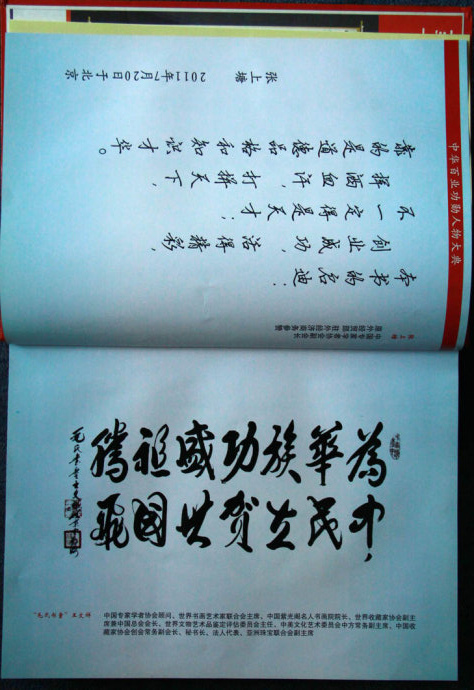 中华百业功勋人物大典
张上塘
中国专家学者协会副会长
原外经贸部驻外经济商务参赞
本书的启迪：
创业成功，活得精彩，
不一定得是天才；
挥洒血汗，打拼天下，
靠的是道德品格和知识才华。
张上塘
2011年7月20日于北京
為中
華民
族立
功賀
盛世
祖国
騰飛
“毛氏书童”王文祥
中国专家学者协会顾问、世界书画艺术家联合会主席、中国紫光阁名人书画院院长、世界收藏家协会副主
席兼中国总会会长、世界文物艺术品鉴定评估委员会主任、中美文化艺术委员会中方常务副主席、中国收
藏家协会创会常务副会长、秘书长、法人代表、亚洲珠宝联合会副主席